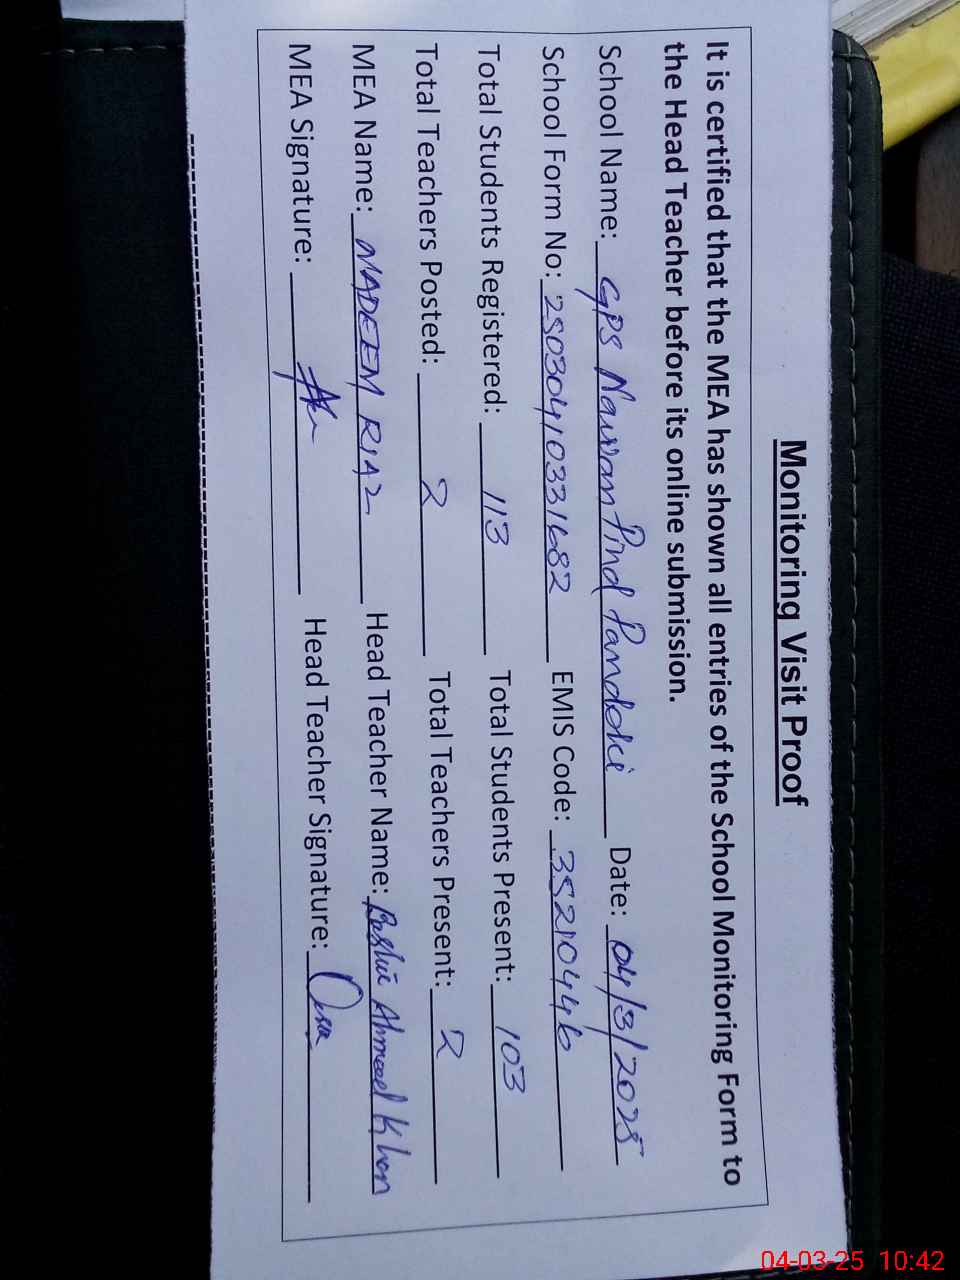 Monitoring Visit Proof
It is certified that the MEA has shown all entries of the School Monitoring Form to
the Head Teacher before its online submission.
School Name: GPS Nawan Pind Pandoki Date: 04/3/2025
School Form No: 25030410331682 EMIS Code: 35210446
Total Students Registered: 113 Total Students Present: 103
Total Teachers Posted: 2 Total Teachers Present: 2
MEA Name: NADEEM RIAZ Head Teacher Name: Bashir Ahmed Khan
MEA Signature: Head Teacher Signature:
04-03-25 10:42